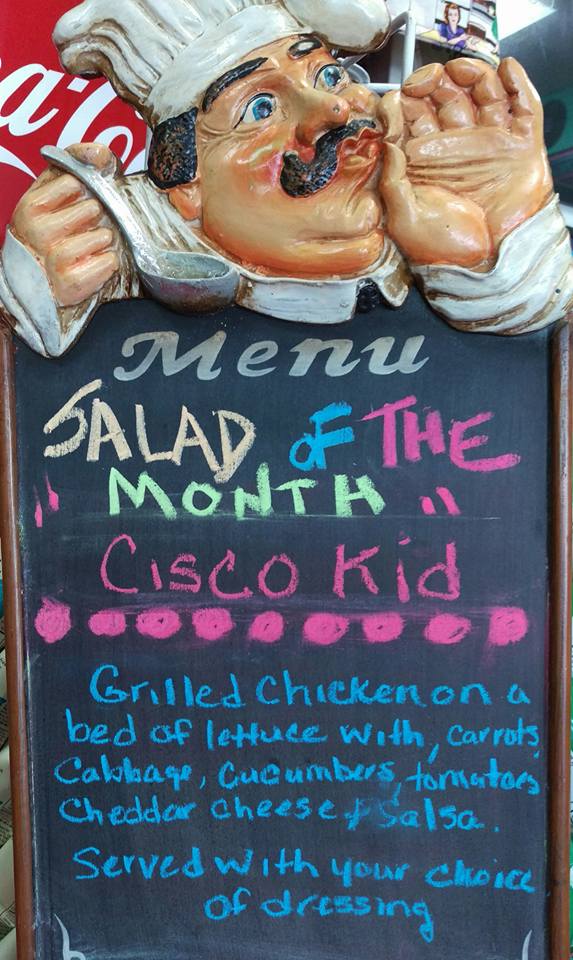 a-C
Menu
SALAD OF THE
" MONTH "
Cisco Kid
Grilled Chicken on a
bed of lettuce with, carrots,
Cabbage, Cucumbers, tomatoes
Cheddar cheese, Salsa.
Served with your choice
of dressing